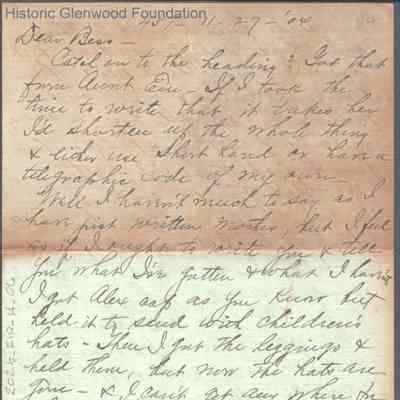 Historic Glenwood Foundation
11-27-'04
Dear Bess-
Catch on to the heading? Got that
from Aunt Edie - If I took the
time to write that it takes her
I'd shorten up the whole thing
& either use Short hand or have a
telegraphic code of my own
Well I haven't much to say as I
have just written Mother, but I feel
as if I ought to write you & tell
you what I've gotten & what I haven't
I got Alex cap as you know but
held it to send with children's
hats - Then I got the leggings &
held them, but now the hats are
gone - & I can't get any where